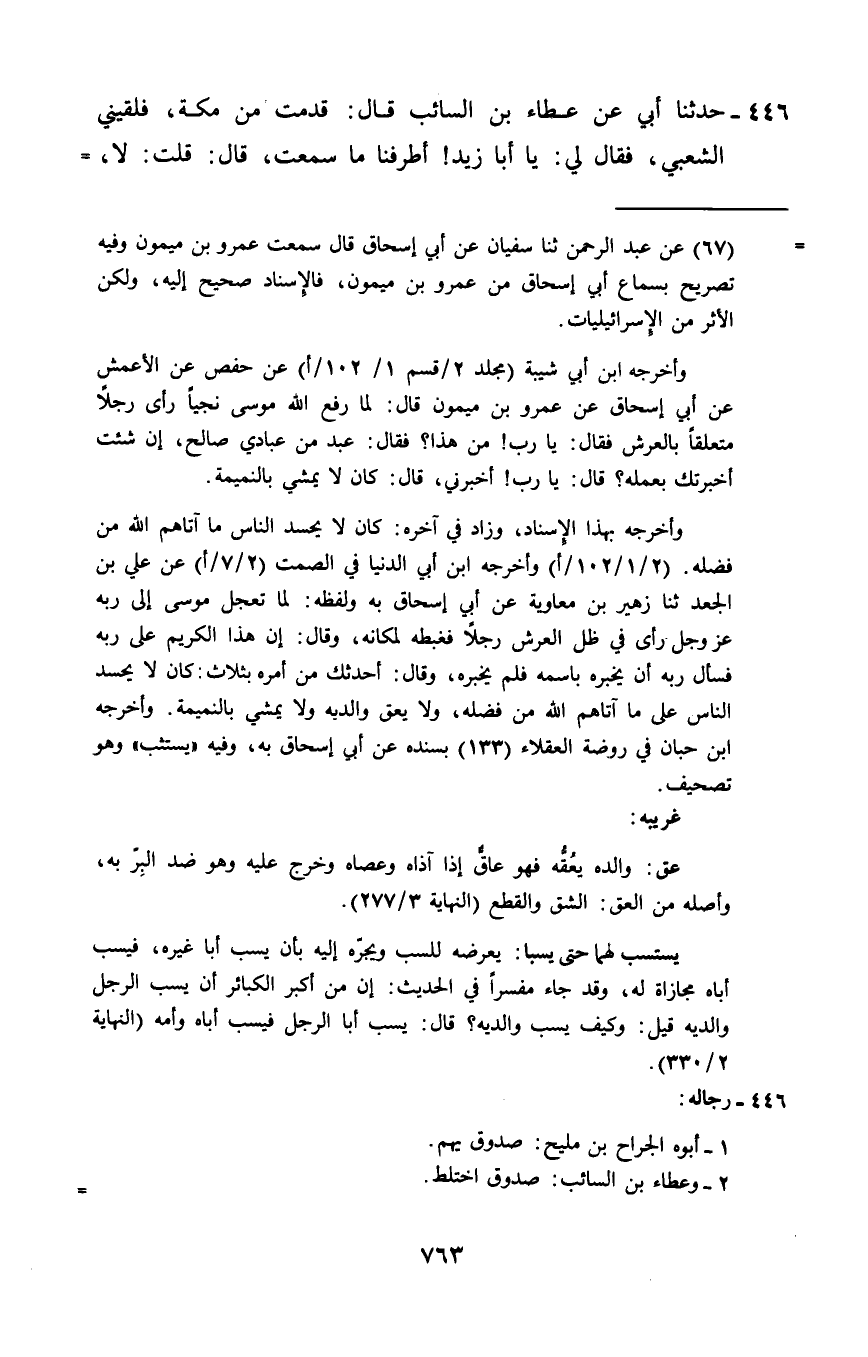 ٤٤٦ ـ حدثنا أبي عن عـطاء بن السائب قـال: قدمت من مكـة، فلقيني
الشعبي، فقال لي: يا أبا زيد! أطرفنا ما سمعت، قال: قلت: لا، =
= (٦٧) عن عبد الرحمن ثنا سفيان عن أبي إسحاق قال سمعت عمرو بن ميمون وفيه
تصريح بسماع أبي إسحاق من عمرو بن ميمون، فالإسناد صحيح إليه، ولكن
الأثر من الإسرائيليات.
وأخرجه ابن أبي شيبة (مجلد ٢/قسم ١/ ١٠٢/أ) عن حفص عن الأعمش
عن أبي إسحاق عن عمرو بن ميمون قال: لما رفع الله موسى نجياً رأى رجلاً
متعلقاً بالعرش فقال: يا رب! من هذا؟ فقال: عبد من عبادي صالح، إن شئت
أخبرتك بعمله؟ قال: يا رب! أخبرني، قال: كان لا يمشي بالنميمة.
وأخرجه بهذا الإسناد، وزاد في آخره: كان لا يحسد الناس ما آتاهم الله من
فضله. (١٠٢/١/٢/أ) وأخرجه ابن أبي الدنيا في الصمت (٧/٢/أ) عن علي بن
الجعد ثنا زهير بن معاوية عن أبي إسحاق به ولفظه: لما تعجل موسى إلى ربه
عز وجل رأى في ظل العرش رجلاً فغبطه لمكانه، وقال: إن هذا الكريم على ربه
فسأل ربه أن يخبره باسمه فلم يخبره، وقال: أحدثك من أمره بثلاث: كان لا يحسد
الناس على ما آتاهم الله من فضله، ولا يعق والديه ولا يمشي بالنميمة. وأخرجه
ابن حبان في روضة العقلاء (١٣٣) بسنده عن أبي إسحاق به، وفيه «يستثب» وهو
تصحيف.
غريبه:
عق: والده يعُقُّه فهو عاقٌّ إذا آذاه وعصاه وخرج عليه وهو ضد البِرّ به،
وأصله من العق: الشق والقطع (النهاية ٢٧٧/٣).
يستسب لهما حتى يسبا: يعرضه للسب ويجرّه إليه بأن يسب أبا غيره، فيسب
أباه مجازاة له، وقد جاء مفسراً في الحديث: إن من أكبر الكبائر أن يسب الرجل
والديه قيل: وكيف يسب والديه؟ قال: يسب أبا الرجل فيسب أباه وأمه (النهاية
٣٣٠/٢).
٤٤٦ ـ رجاله:
١ ـ أبوه الجراح بن مليح: صدوق يهم.
٢ ـ وعطاء بن السائب: صدوق اختلط. =
٧٦٣